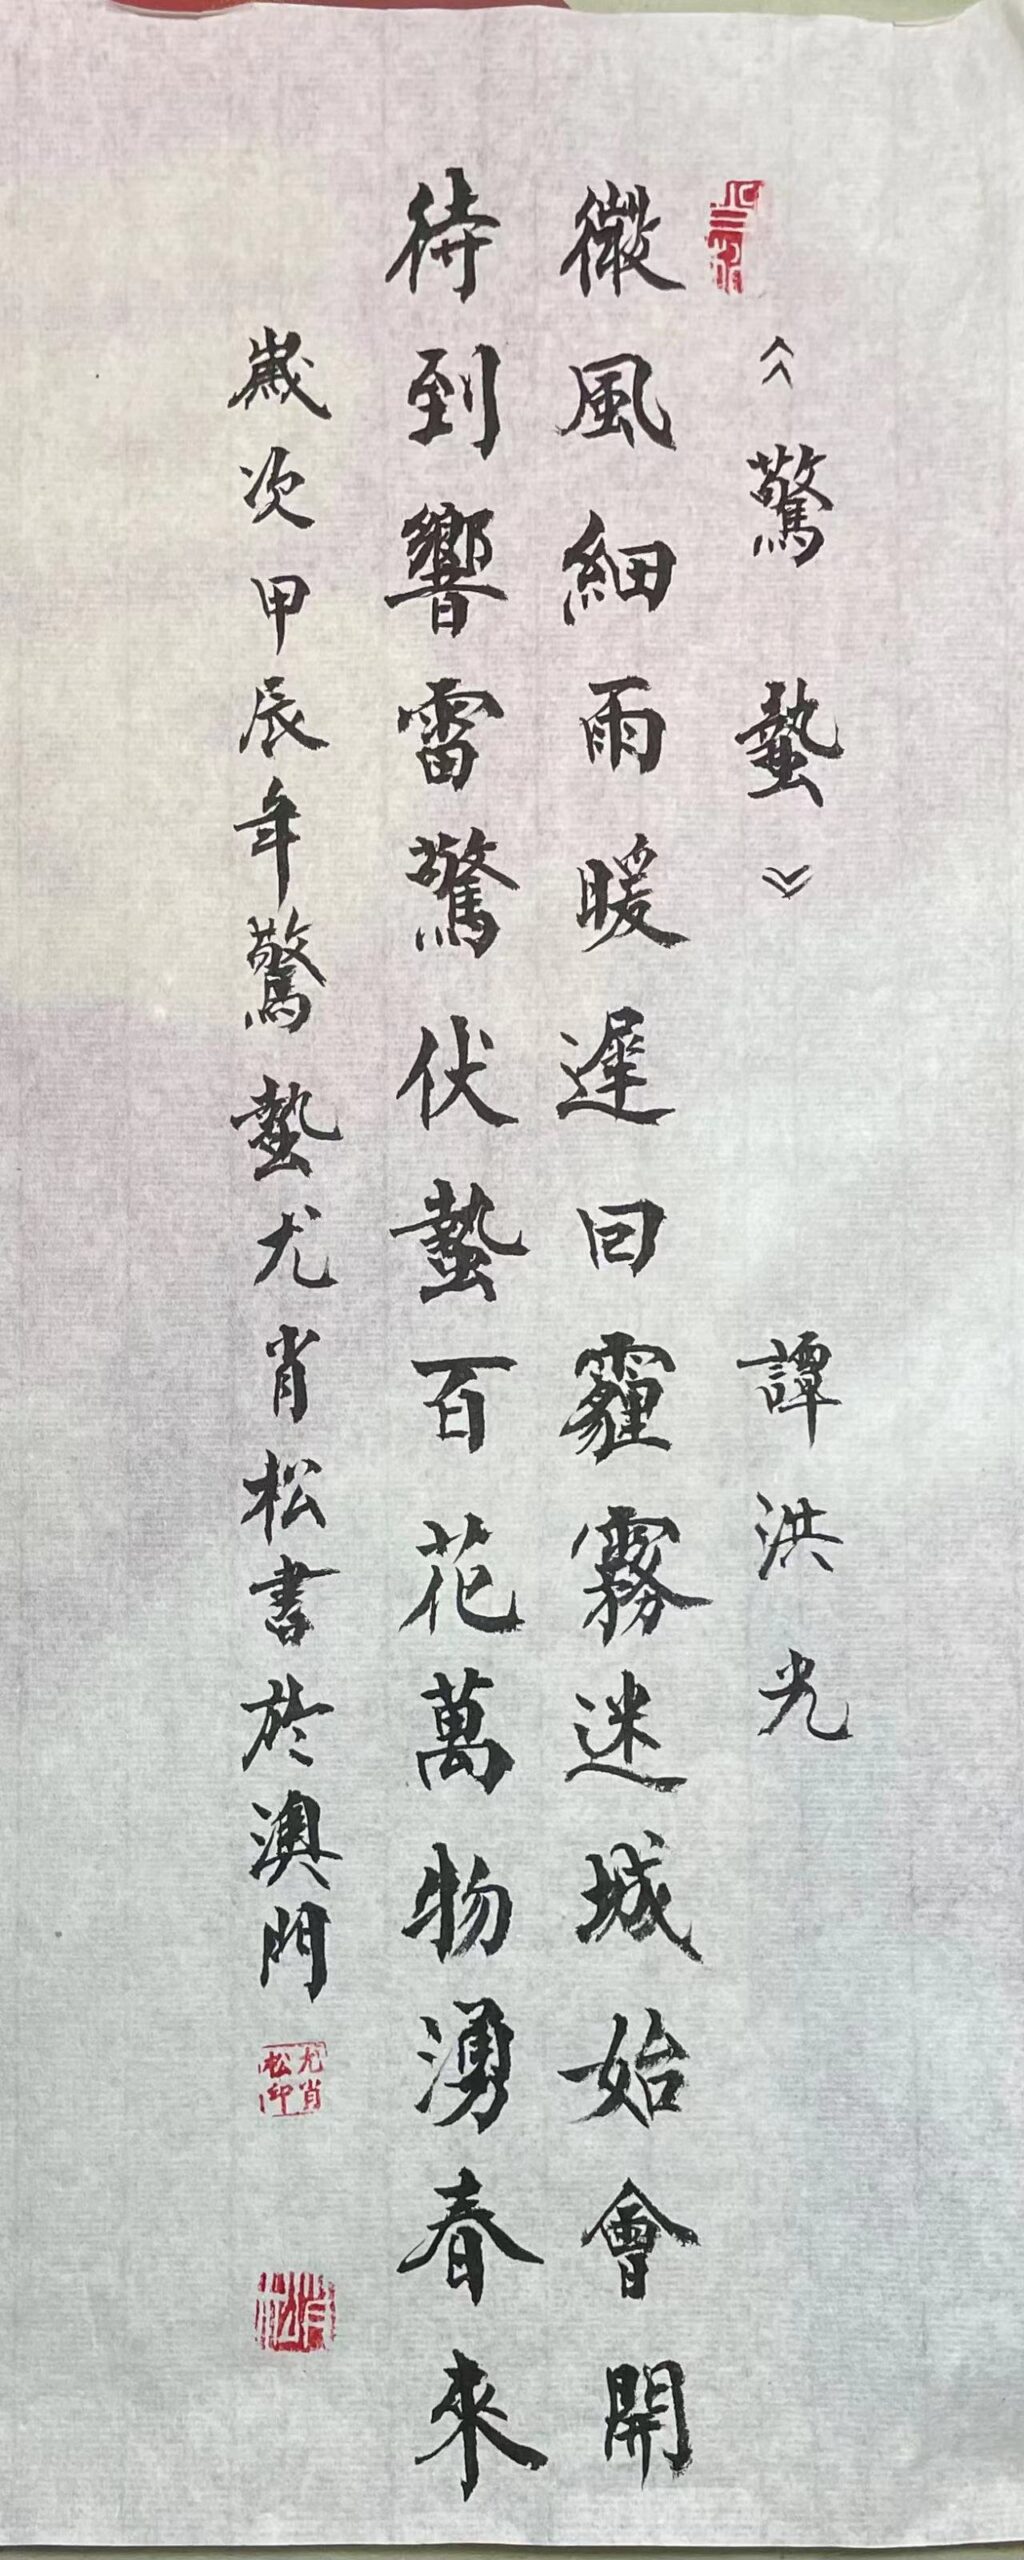 《驚蟄》 譚洪光
微風細雨暖遲回霾霧迷城始會開
待到響雷驚伏蟄百花萬物湧春來
歲次甲辰年驚蟄尤肖松書於澳門
尤肖松印